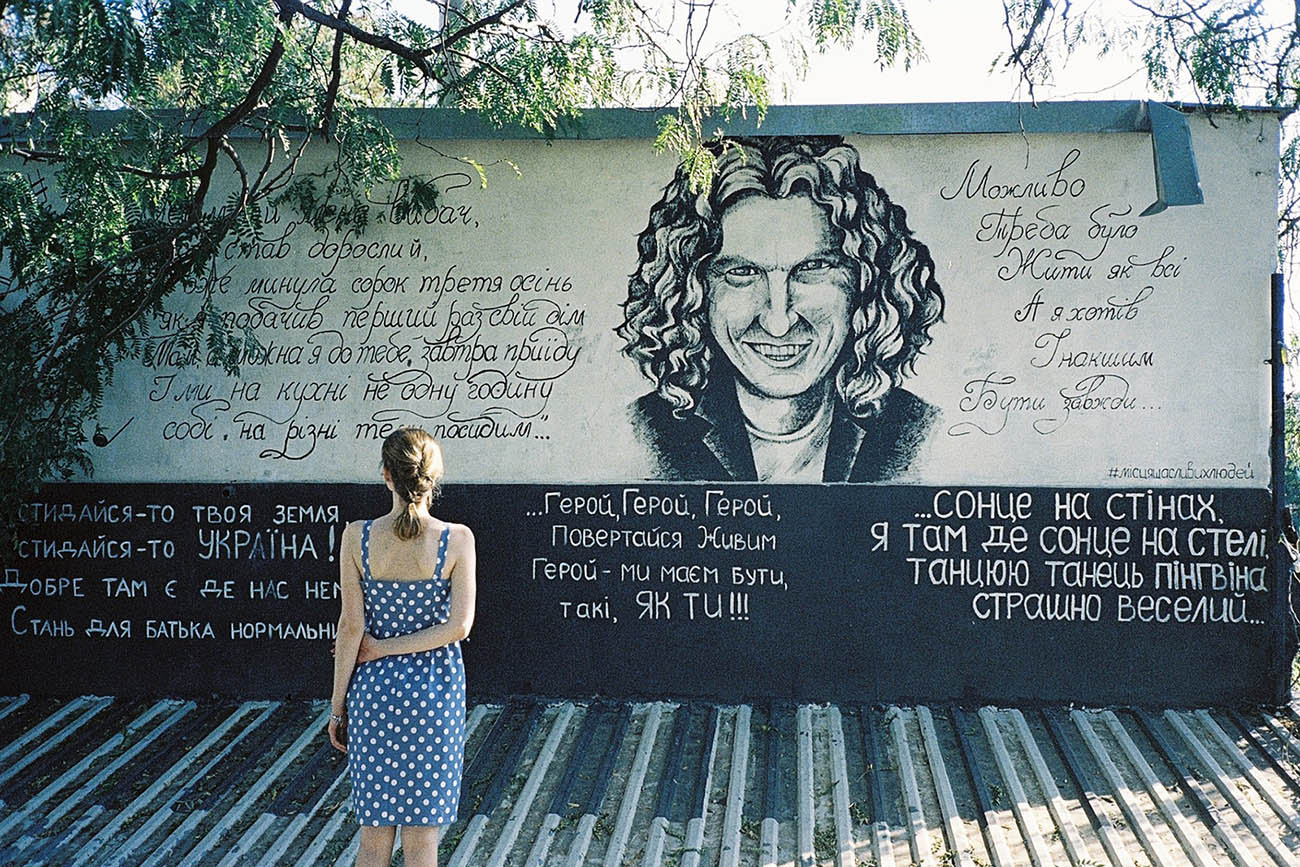 вибач,
став дорослий,
минула сорок третя осінь
як я побачив перший раз свій дім
Мам, а можна я до тебе, завтра приїду
І ми на кухні не одну годину
собі, на різні теми посидим...
Можливо
Треба було
Жити як всі
А я хотів
Інакшим
Бути завжди...
#місцящасливихлюдей
стидайся-то твоя земля
стидайся-то УКРАЇНА!
Добре там є де нас нем
Стань для батька нормальни
...Герой, Герой, Герой,
Повертайся Живим
Герой - ми маєм бути,
такі, ЯК ТИ!!!
...СОНЦЕ НА СТІНАХ,
Я ТАМ ДЕ СОНЦЕ НА СТЕЛІ,
ТАНЦЮЮ ТАНЕЦЬ ПІНГВІНА
СТРАШНО ВЕСЕЛИЙ...